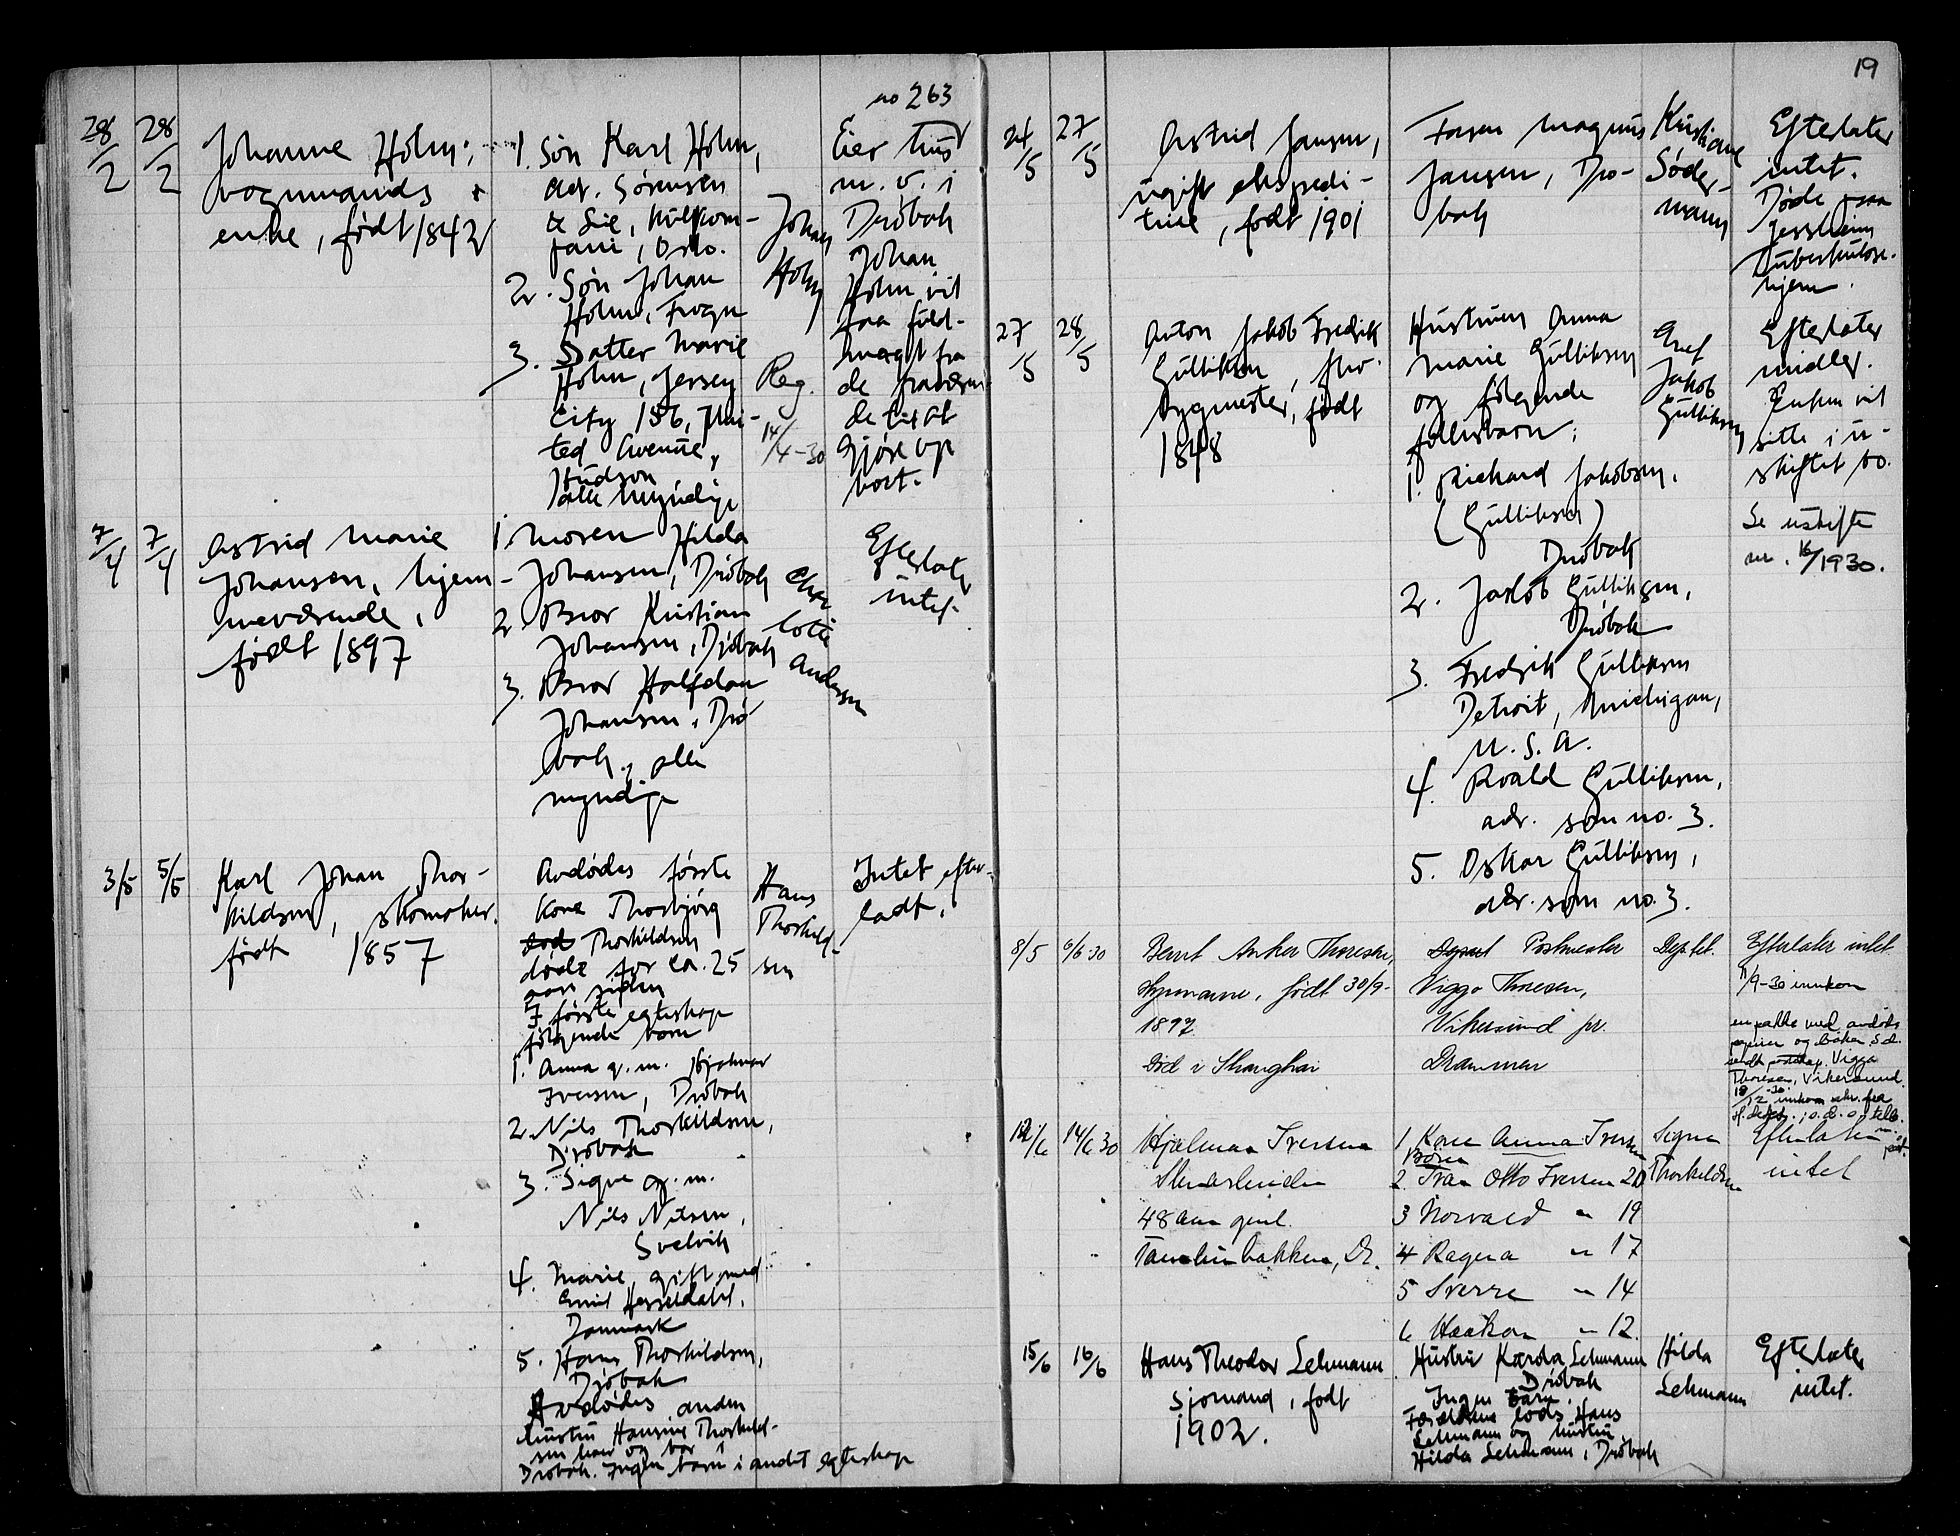 no 263
28/2 28/2
Johanne Holm,
vognmands
enke, født 1842
1. Søn Karl Holm,
adr. Sørensen
& Sie, kulkom-
pani, Oslo.
2. Søn Johan
Holm, Frogn
3. Datter Marie
Holm, Jersey
City 156, Uni-
ted Avenue,
Hudson
alle myndige
Johan
Holm
Reg.
14/4-30
Eier hus
m. v. i
Drøbak
Johan
Holm vil
faa fuld-
magt fra
de
gjøre op
boet.
7/4 7/4
Astrid Marie
Johansen, hjem-
meværende,
født 1897
1. Moren Hilda
Johansen, Drøbak
2. Bror Kristian
Johansen, Drøbak
3. Bror Halfdan
Johansen, Drø
bak, alle
myndige
Char
lotte
Andersen
Efterlater
intet.
3/5 5/5
Karl Johan Thor-
kildsen, skomaker.
født 1857
Avdødes første
kone Thorbjørg
Thorkildsen
døde for ca. 25
aar siden
I første egteskap
følgende barn
1. Anna g. m. Hjalmar
Iversen, Drøbak
2. Nils Thorkildsen,
Drøbak
3. Signe g. m.
Nils Nilsen,
Svelvik
4. Marie, gift med
Emil Hesseldahl,
Danmark
5. Hans Thorkildsen,
Drøbak
Avdødes anden
hustru Hansine Thorkild-
sen
Drøbak. Ingen barn i andet egteskap
Hans
Thorkild-
sen
Intet efter-
ladt.
19
24/5 27/5
Astrid Jansen,
ugift ekspedi-
trise, født 1901
Faren Magnus
Jansen, Drø-
bak
Kristiane
Søder-
mann
Efterlater
intet.
Døde paa
Jessheim
Tuberkulose-
hjem.
27/5 28/5
Anton Jakob Fredrik
Gulliksen, ski-
bygmester, født
1848
Hustruen Anna
Marie Gulliksen
og følgende
fellesbarn:
1. Rickard Jakobsen.
(Gulliksen)
Drøbak
2. Jakob Gulliksen,
Drøbak
3. Fredrik Gulliksen
Detroit, Michigan,
U. S. A.
4. Roald Gulliksen,
adr. som no. 3.
5. Oskar Gulliksen,
adr. som no. 3.
Jakob
Gulliksen
Efterlater
midler.
Enken vil
sitte i u-
skiftet bo.
Se uskifte
nr. 16/1930.
8/5 6/6 30
Bernt Anker Thoresen,
styrmann, født 30/9-
1897
Død i Shanghai
Postmester
Viggo Thoresen,
Vikersund pr.
Drammen
Dep tet.
Efterlater intet
11/9-30 innkom
en pakke med avdøds
papirer og bøker s.d.
sendt postekp. Viggo
Thoresen, Vikersund.
18/12 -30 innkom skr. fra
12/6 14/6 30
Hjalmar Iversen
Stenarbeider
48 aar gml.
Tamburbakken, Dr.
1 Kone Anna Iversen
Børn
2. Fran Otto Iversen 20
3 Norvald " 19
4 Ragna " 17
5 Sverre " 14
6 Haakon " 12.
Signe
Thorkildsen
Efterlater
intet
15/6 16/6
Hans Theodor Lehmann
sjømand, født
1902.
Hustru Karda Lehmann
Drøbak
Ingen barn.
Forældrene lods Hans
Lehmann og hustru
Hilda Lehmann, Drøbak
Hilda
Lehmann
Efterlater
intet.